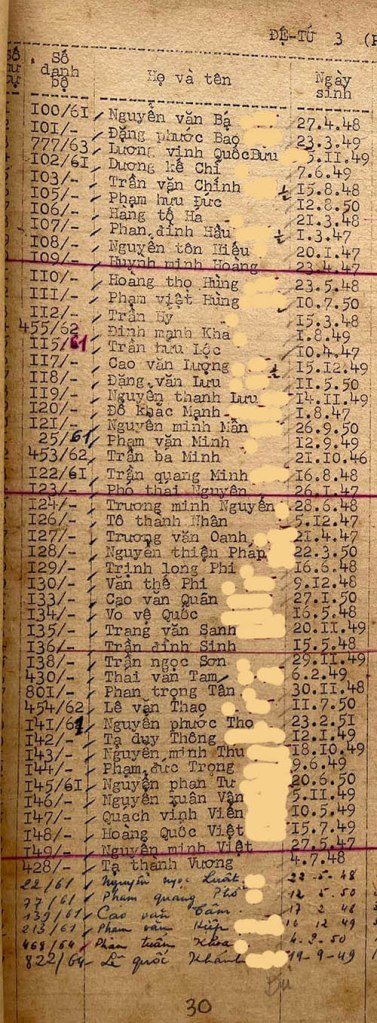 ĐỆ-TỨ 3 (P
Số Số
danh Họ và tên Ngày
bộ sinh
I00/6I Nguyễn văn Bá 27.4.48
I0I/- Đặng phước Bảo 23.3.49
777/63 Lương vinh QuốcBửu 5.II.49
I02/6I Dương kế Chí 7.6.49
I03/- Trần văn Chính I5.8.48
I05/- Phạm hữu Đức I2.8.50
I06/- Hàng tố Hà 2I.3.48
I07/- Phan đình Hầu I.3.47
I08/- Nguyễn tôn Hiệu 20.I.47
I09/- Huỳnh minh Hoàng 23.4.47
II0/- Hoàng thọ Hùng 23.5.48
III/- Phạm việt Hùng I0.7.50
II2/- Trần Hỷ I5.3.48
455/62 Đinh mạnh Kha I.8.49
II5/61 Trần hữu Lộc I0.4.47
II7/- Cao văn Lượng I5.I2.49
II8/- Đặng văn Lưu II.5.50
II9/- Nguyễn thanh Lưu I4.II.49
I20/- Đỗ khắc Mạnh I.8.47
I2I/- Nguyễn minh Mẫn 26.9.50
25/61 Phạm văn Minh I2.9.49
453/62 Trần ba Minh 2I.I0.46
I22/6I Trần quang Minh I6.8.48
I23/- Phó thái Nguyên 26.I.47
I24/- Trương minh Nguyên 28.6.48
I26/- Tô thành Nhân 5.I2.47
I27/- Trương văn Oanh 2I.4.47
I28/- Nguyễn thiện Pháp 22.3.50
I29/- Trịnh long Phi I6.6.48
I30/- Văn thế Phi 9.I2.48
I33/- Cao văn Quân 27.I.50
I34/- Võ vệ Quốc I6.5.48
I35/- Trang văn Sanh 20.II.49
I36/- Trần đình Sinh I5.5.48
I38/- Trần ngọc Sơn 29.II.49
430/- Thái văn Tám 6.2.49
80I/- Phan trọng Tấn 30.II.48
454/62 Lê văn Thao II.7.50
I4I/61 Nguyễn phước Thọ 23.2.5I
I42/- Tạ duy Thông I2.I.49
I43/- Nguyễn minh Thu I8.I0.49
I44/- Phạm đức Trọng 9.6.49
I45/6I Nguyễn phan Tư 20.6.50
I46/- Nguyễn xuân Vân 5.II.49
I47/- Quách vinh Viễn I0.5.49
I48/- Hoàng Quốc Việt I5.7.49
I49/- Nguyễn minh Việt 27.5.47
428/- Tạ thành Vương 4.7.48
22/61 Nguyễn ngọc Luật 22-5-48
77/61 Phạm quang Phố 12 5.50
139/61 Cao văn Tâm 17 2 48
213/61 Phạm văn Hiệp 16 12 49
469/64 Phan tuấn Khoa 4-2-50
822/64 Lê quốc Khánh 19-9-49
30